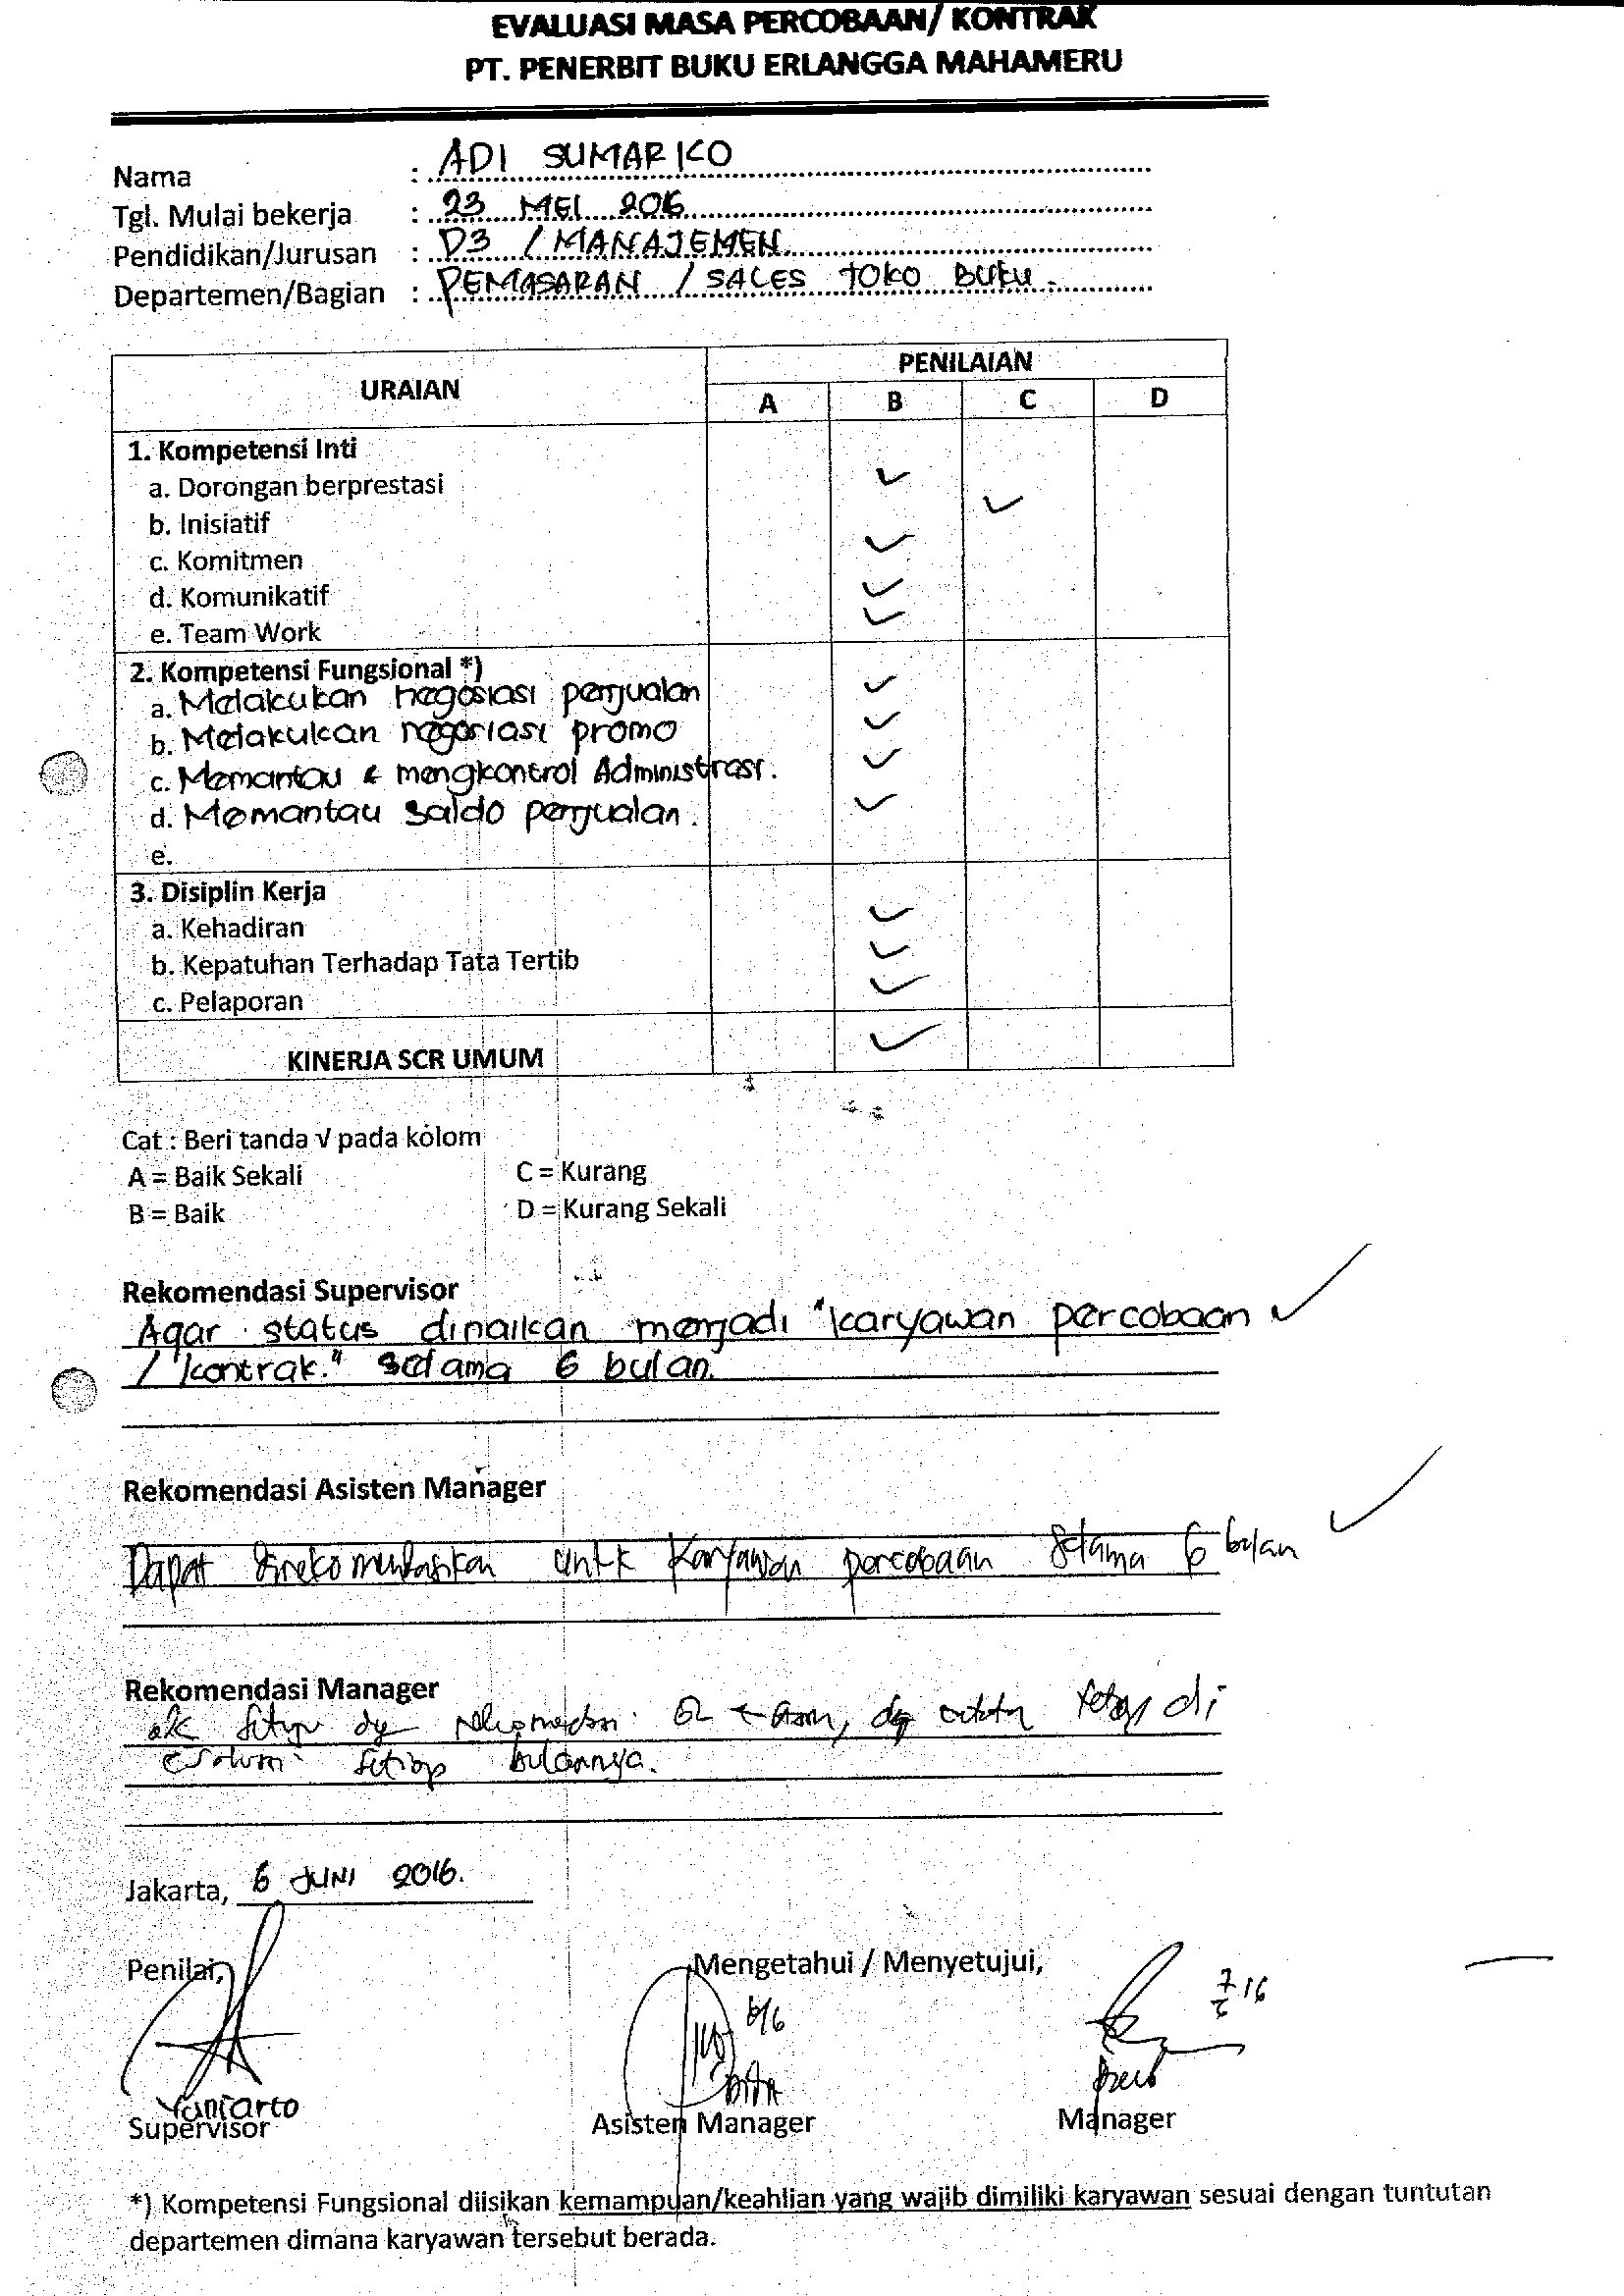 EVALUASI MASA PERCOBAAN/ KONTRAK
PT. PENERBIT BUKU ERLANGGA MAHAMERU
Nama : ADI SUMARIKO
Tgl. Mulai bekerja : 23 MEI 2016
Pendidikan/Jurusan : D3 / MANAJEMEN
Departemen/Bagian : PEMASARAN / SALES TOKO BUKU.
URAIAN PENILAIAN
A B C D
1. Kompetensi Inti
a. Dorongan berprestasi ✓
b. Inisiatif ✓
c. Komitmen ✓
d. Komunikatif ✓
e. Team Work ✓
2. Kompetensi Fungsional *)
a. Melakukan negosiasi penjualan ✓
b. Melakukan negosiasi promo ✓
c. Memantau & mengkontrol Administrasi. ✓
d. Memantau saldo penjualan. ✓
e.
3. Disiplin Kerja
a. Kehadiran ✓
b. Kepatuhan Terhadap Tata Tertib ✓
c. Pelaporan ✓
KINERJA SCR UMUM ✓
Cat : Beri tanda √ pada kolom
A = Baik Sekali C = Kurang
B = Baik D = Kurang Sekali
Rekomendasi Supervisor
Agar status dinaikan menjadi "karyawan percobaan ✓
/ kontrak." selama 6 bulan.
Rekomendasi Asisten Manager
Dapat direkomendasikan untk Karyawan percobaan selama 6 bulan ✓
Rekomendasi Manager
tetap di
setiap bulannya.
Jakarta, 6 JUNI 2016.
Penilai, Mengetahui / Menyetujui,
6/6 7/6 16
Yuniarto
Supervisor Asisten Manager Manager
*) Kompetensi Fungsional diisikan kemampuan/keahlian yang wajib dimiliki karyawan sesuai dengan tuntutan
departemen dimana karyawan tersebut berada.